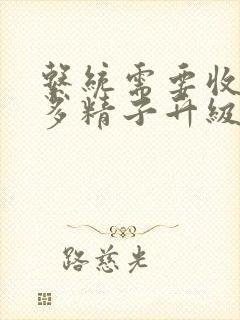 系统需要收
多精子升级
路慈光